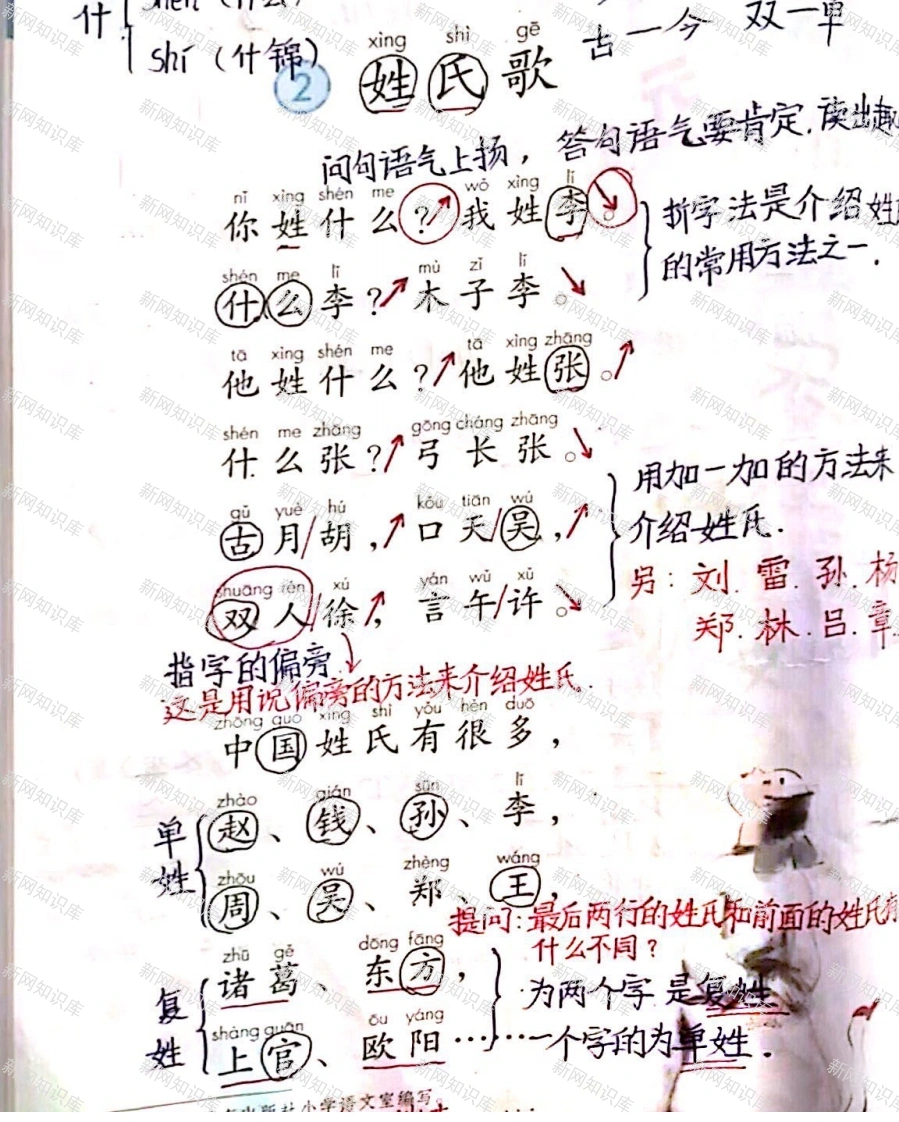 什
shén (什么)
shí (什锦)
古一今 双一单
xìng shì gē
2 姓氏歌
问句语气上扬，答句语气要肯定.读出趣
nǐ xìng shén me wǒ xìng lǐ
你姓什么？我姓李。
折字法是介绍姓
的常用方法之一.
shén me lǐ mù zǐ lǐ
什么李？木子李。
tā xìng shén me tā xìng zhāng
他姓什么？他姓张。
shén me zhāng gōng cháng zhāng
什么张？弓长张。
用加一加的方法来
介绍姓氏.
另：刘.雷.孙.杨
郑.林.吕.章
gǔ yuè hú kǒu tiān wú
古月/胡，口天/吴，
shuāng rén xú yán wǔ xǔ
双人/徐，言午/许。
指字的偏旁
这是用说偏旁的方法来介绍姓氏.
zhōng guó xìng shì yǒu hěn duō
中国姓氏有很多，
单姓
zhào qián sūn lǐ
赵、钱、孙、李，
zhōu wú zhèng wáng
周、吴、郑、王，
提问：最后两行的姓氏和前面的姓氏有
什么不同？
复姓
zhū gě dōng fāng
诸葛、东方，
为两个字是复姓
shàng guān ōu yáng
上官、欧阳……
一个字的为单姓.
出版社小学语文室编写。
新网知识库